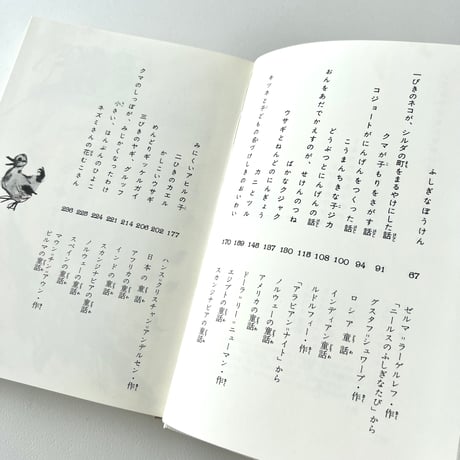 ふしぎなぼうけん
一ぴきのネコが、シルダの町をまるやけにした話
クマが子もりをさがす話
コジョートがにんげんをつくった話
こうまんちきな子ジカ
どうぶつとにんげんの話
おんをあだでかえすのが、せけんのつね
ばかなクジャク
ウサギとねんどのにんぎょう
カニとツル
キツネと子どもの名づけしきのおいわい
67
91
94
100
108
115
130
137
145
159
170
ゼルマ=ラーゲルレフ・作
「ニールスのふしぎなたび」から
グスタフ=シュワーブ・作
ロシア童話
インディアン童話
ルドルフィー・作
「アラビアン=ナイト」から
ノルウェーの童話
アメリカの童話
ドーラ=リー=ニューマン・作
エジプトの童話
スカンジナビアの童話
みにくいアヒルの子
二ひきのカエル
かしこいウサギ
めんどりギッケルガイ
三びきのヤギ、グルッフ
クマのしっぽが、みじかくなったわけ
小さい、はんぶんのひよこ
ネズミさんの花むこさん
177
202
206
214
221
224
225
236
ハンス=クリスチャン=アンデルセン・作
日本の童話
アフリカの童話
インドの童話
スカンジナビアの童話
ノルウェーの童話
スペインの童話
マウン=チン=アウン・作
ビルマの童話